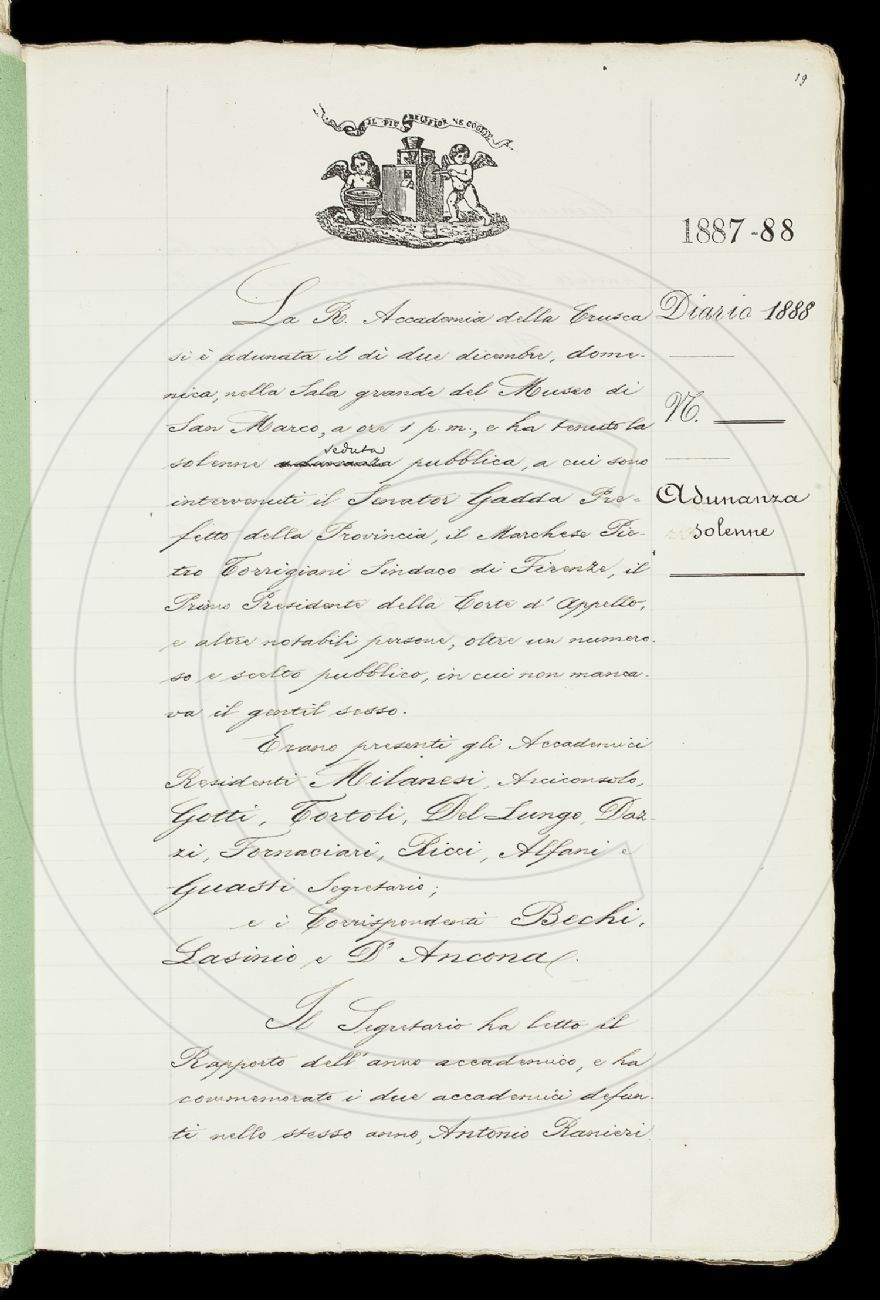 19
IL PIÙ BEL FIOR NE COGLIE
1887-88
Diario 1888
N.
Adunanza
solenne
La R. Accademia della Crusca
si è adunata il dì due dicembre, dome-
nica, nella Sala grande del Museo di
San Marco, a ore 1 p.m., e ha tenuto la
solenne adunanza seduta pubblica, a cui sono
intervenuti il Senator Gadda Pre-
fetto della Provincia, il Marchese Pie-
tro Torrigiani Sindaco di Firenze, il
Primo Presidente della Corte d'Appello,
e altre notabili persone, oltre un numero-
so e scelto pubblico, in cui non manca-
va il gentil sesso.
Erano presenti gli Accademici
Residenti Milanesi, Arciconsolo,
Gotti, Tortoli, Del Lungo, Daz-
zi, Fornaciari, Ricci, Alfani e
Guasti Segretario;
e i Corrispondenti Bechi,
Lasinio e D'Ancona.
Il Segretario ha letto il
Rapporto dell'anno accademico, e ha
commemorato i due accademici defun-
ti nello stesso anno, Antonio Ranieri